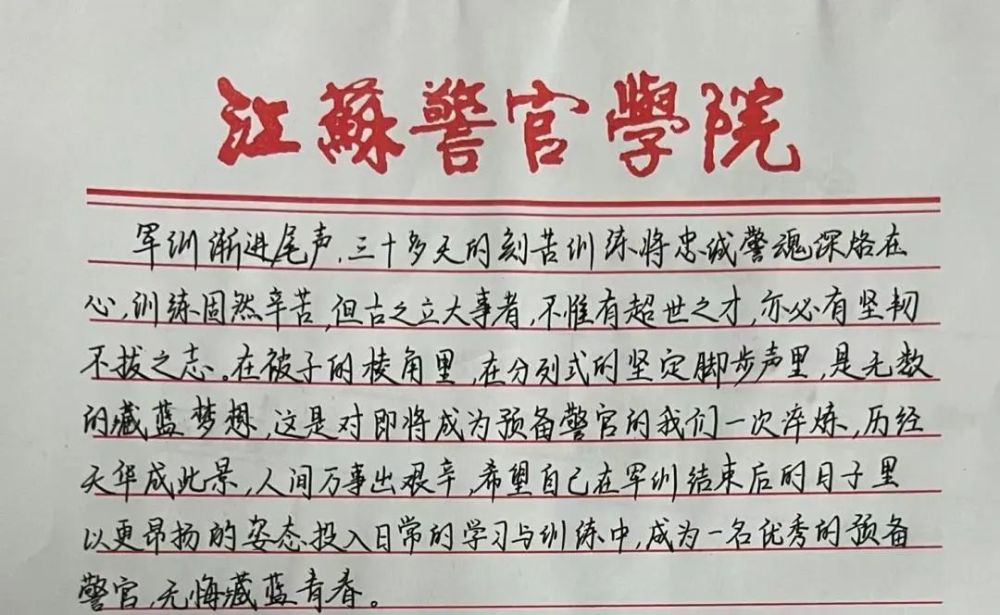 江蘇警官學院
军训渐进尾声,三十多天的刻苦训练将忠诚警魂深烙在
心,训练固然辛苦,但古之立大事者,不惟有超世之才,亦必有坚韧
不拔之志。在被子的棱角里,在分列式的坚定脚步声里,是无数
的藏蓝梦想,这是对即将成为预备警官的我们一次淬炼,历经
天华成此景,人间万事出艰辛,希望自己在军训结束后的日子里
以更昂扬的姿态投入日常的学习与训练中,成为一名优秀的预备
警官,无悔藏蓝青春。